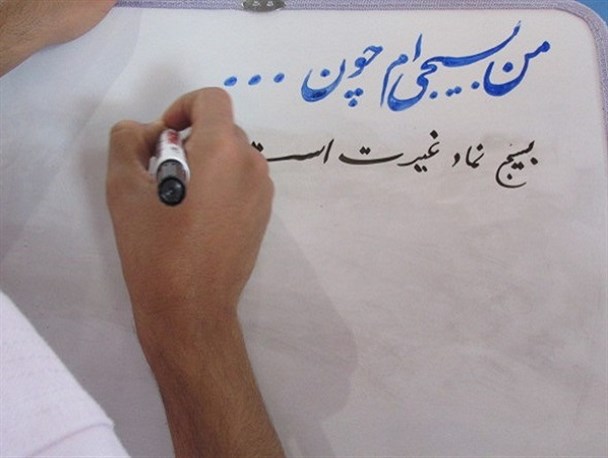 من بسیجی ام چون ...
بسیج نماد غیرت است